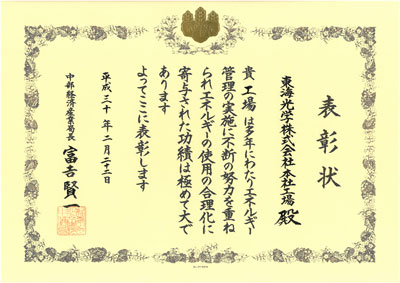 表彰状
東海光学株式会社本社工場 殿
貴工場は多年にわたりエネルギー
管理の実施に不断の努力を重ね
られエネルギーの使用の合理化に
寄与された功績は極めて大で
あります
よってここに表彰します
平成三十年二月二十二日
中部経済産業局長 富吉賢一